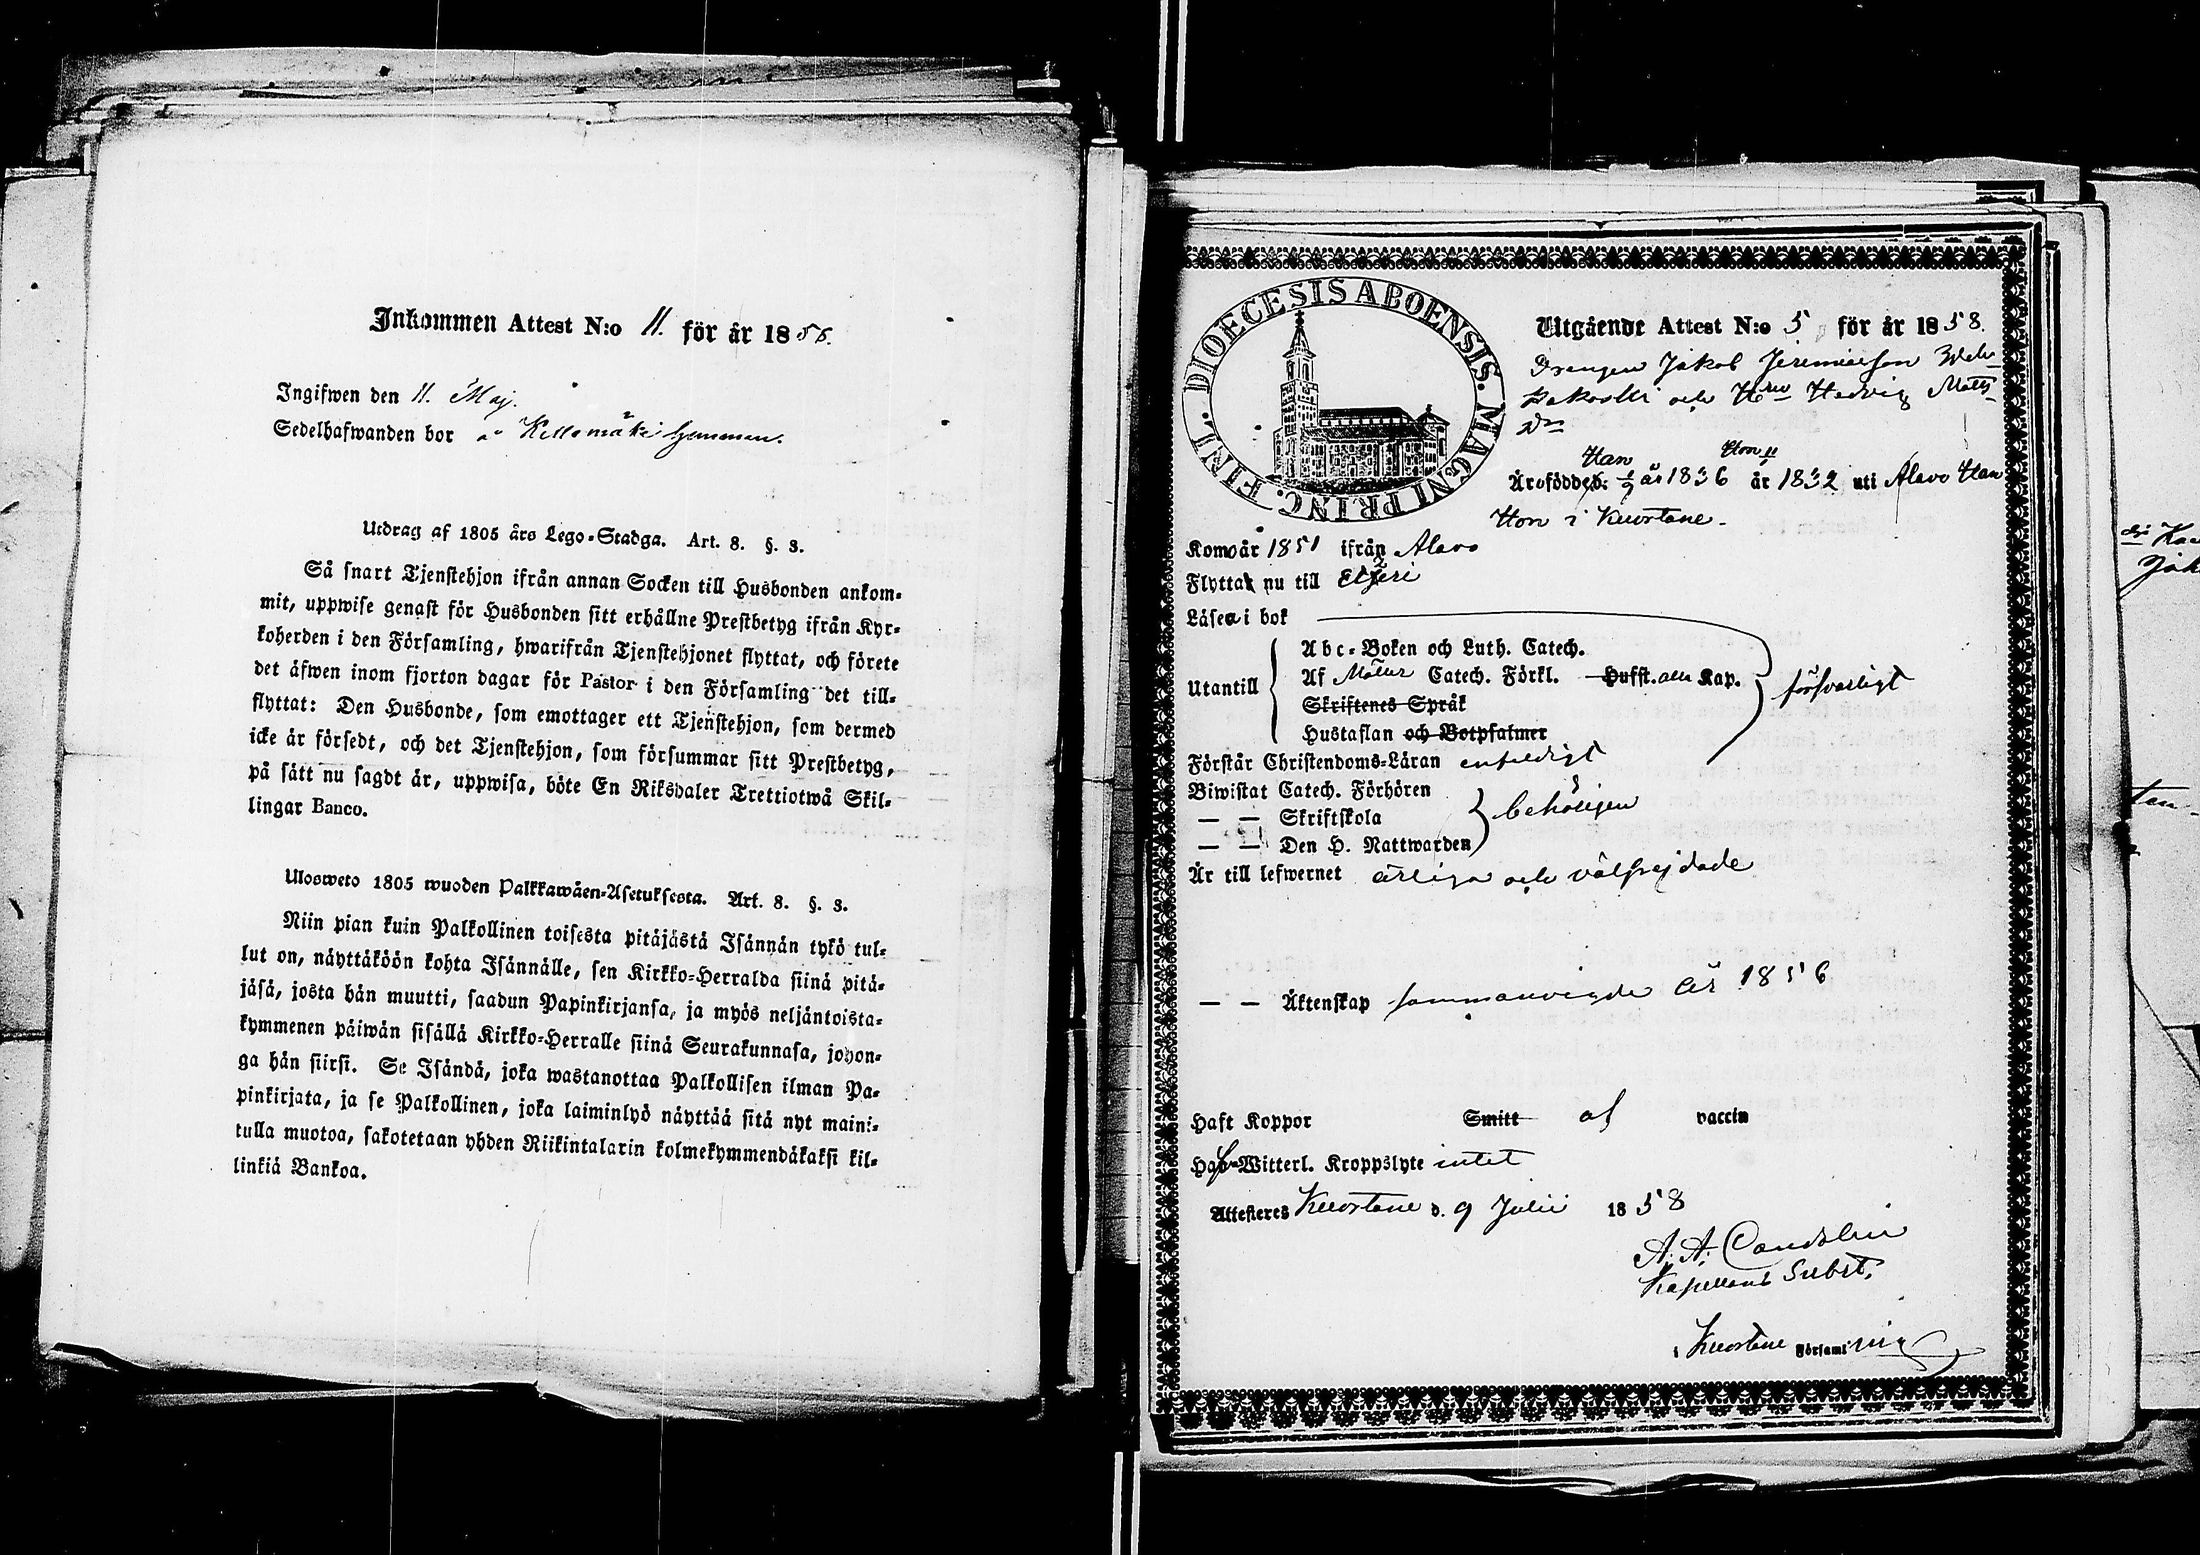 Inkommen Attest N:o 11. för år 1858.
Ingifwen den 11. Maj.
Sedelhafwanden bor å Killomäki hemman.
Utdrag af 1805 års Lego-Stadga. Art. 8. §. 3.
Så snart Tjenstehjon ifrån annan Socken till Husbonden ankom-
mit, uppwise genast för Husbonden sitt erhållne Prestbetyg ifrån Kyr-
koherden i den Församling, hwarifrån Tjenstehjonet flyttat, och förete
det äfwen inom fjorton dagar för Pastor i den Församling det till-
flyttat: Den Husbonde, som emottager ett Tjenstehjon, som dermed
icke är försedt, och det Tjenstehjon, som försummar sitt Prestbetyg,
på sätt nu sagdt är, uppwisa, böte En Riksdaler Trettiotwå Skil-
lingar Banco.
Ulosweto 1805 wuoden Palkkawäen-Asetuksesta. Art. 8. §. 3.
Niin pian kuin Palkollinen toisesta pitäjästä Isännän tykö tul-
lut on, näyttäköön kohta Isännälle, sen Kirkko-Herralda siinä pitä-
jäsä, josta hän muutti, saadun Papinkirjansa, ja myös neljäntoista-
kymmenen päiwän sisällä Kirkko-Herralle siinä Seurakunnasa, johon-
ga hän siirsi. Se Isändä, joka wastanottaa Palkollisen ilman Pa-
pinkirjata, ja se Palkollinen, joka laiminlyö näyttää sitä nyt maini-
tulla muotoa, sakotetaan yhden Riikintalarin kolmekymmendäkaksi kil-
linkiä Bankoa.
DIOECESIS ABOENSIS. MAGNI PRINC. FINL.
Utgående Attest N:o 5 för år 1858.
Drengen Jakob Jeremiasson
och Hru Hedvig Matts
Dr
Han Hon
Äro födde: år 1836 år 1832 uti Alavo Han
Hon i Kuortane.
Kom år 1851 ifrån Alavo
Flytta nu till Etseri
Läsa i bok
Abc-Boken och Luth. Catech.
Utantill Af Möllers Catech. Förkl. Husst. Kap. försvarligt
Skriftenes Språk
Hustaflan och Botpsalmer
Förstår Christendoms-Läran enfaldigt
Biwistat Catech. Förhören
— — Skriftskola behörigen
— — Den H. Nattwarden
Är till lefwernet ärliga och välfrejdade
— — Äktenskap sammanvigde år 1856
Haft Koppor Smitt af vaccin
Haf Witterl. Kroppslyte intet
Attesteras Kuortane d. 9 Julii 1858
A. A. Candelin
Kapellans Subst.
i Kuortane Församling